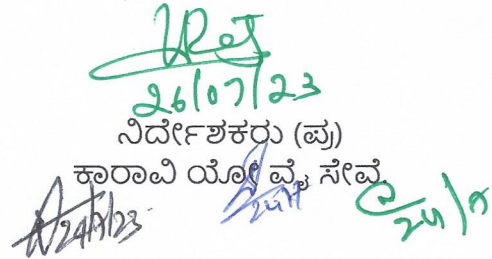 26/07/23
ನಿರ್ದೇಶಕರು (ಪ್ರ)
ಕಾರಾವಿ ಯೋ ವೈ ಸೇವೆ
24/7/23